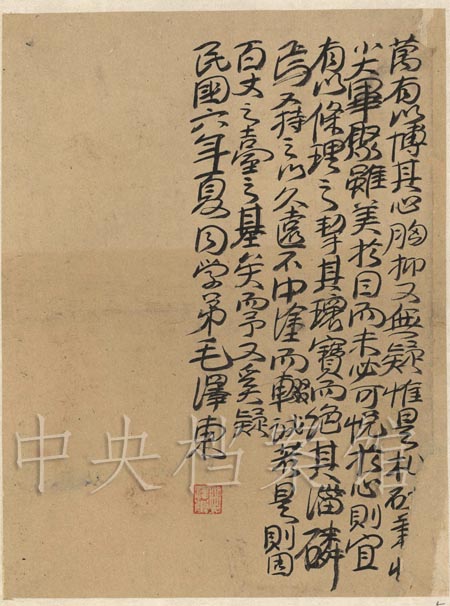 萬有以博其心胸抑又無疑惟是札
小大畢聚雖美於目而未必可悅於心則宜
有以條理之挈其瑰寶而絕其淄磷
焉又持之以久遠不中塗而輟誠若是則固
百丈之臺之基矣而予又奚疑
民國六年夏同学弟毛澤東
中央档案馆